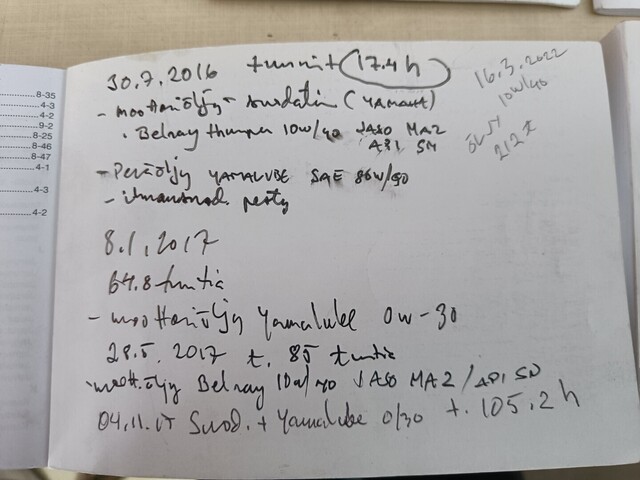 8-35
4-3
4-2
9-2
8-25
8-46
8-47
4-1
4-3
4-2
30.7.2016 tunnit 17.4h
- moottoriöljy + suodatin (YAMAHA)
. Belray thumper 10W/40 JASO MA2
API SM
- Peräöljy YAMALUBE SAE 80W/90
- ilmansuod. pesty
16.3.2022
10W/40
212t
8.1.2017
64.8 tuntia
- moottoriöljy Yamalube 0W-30
28.5.2017 t. 85 tuntia
- moott.öljy Belray 10W/40 JASO MA2/API
04.11.17 Suod. + Yamalube 0/30 t. 105.2h